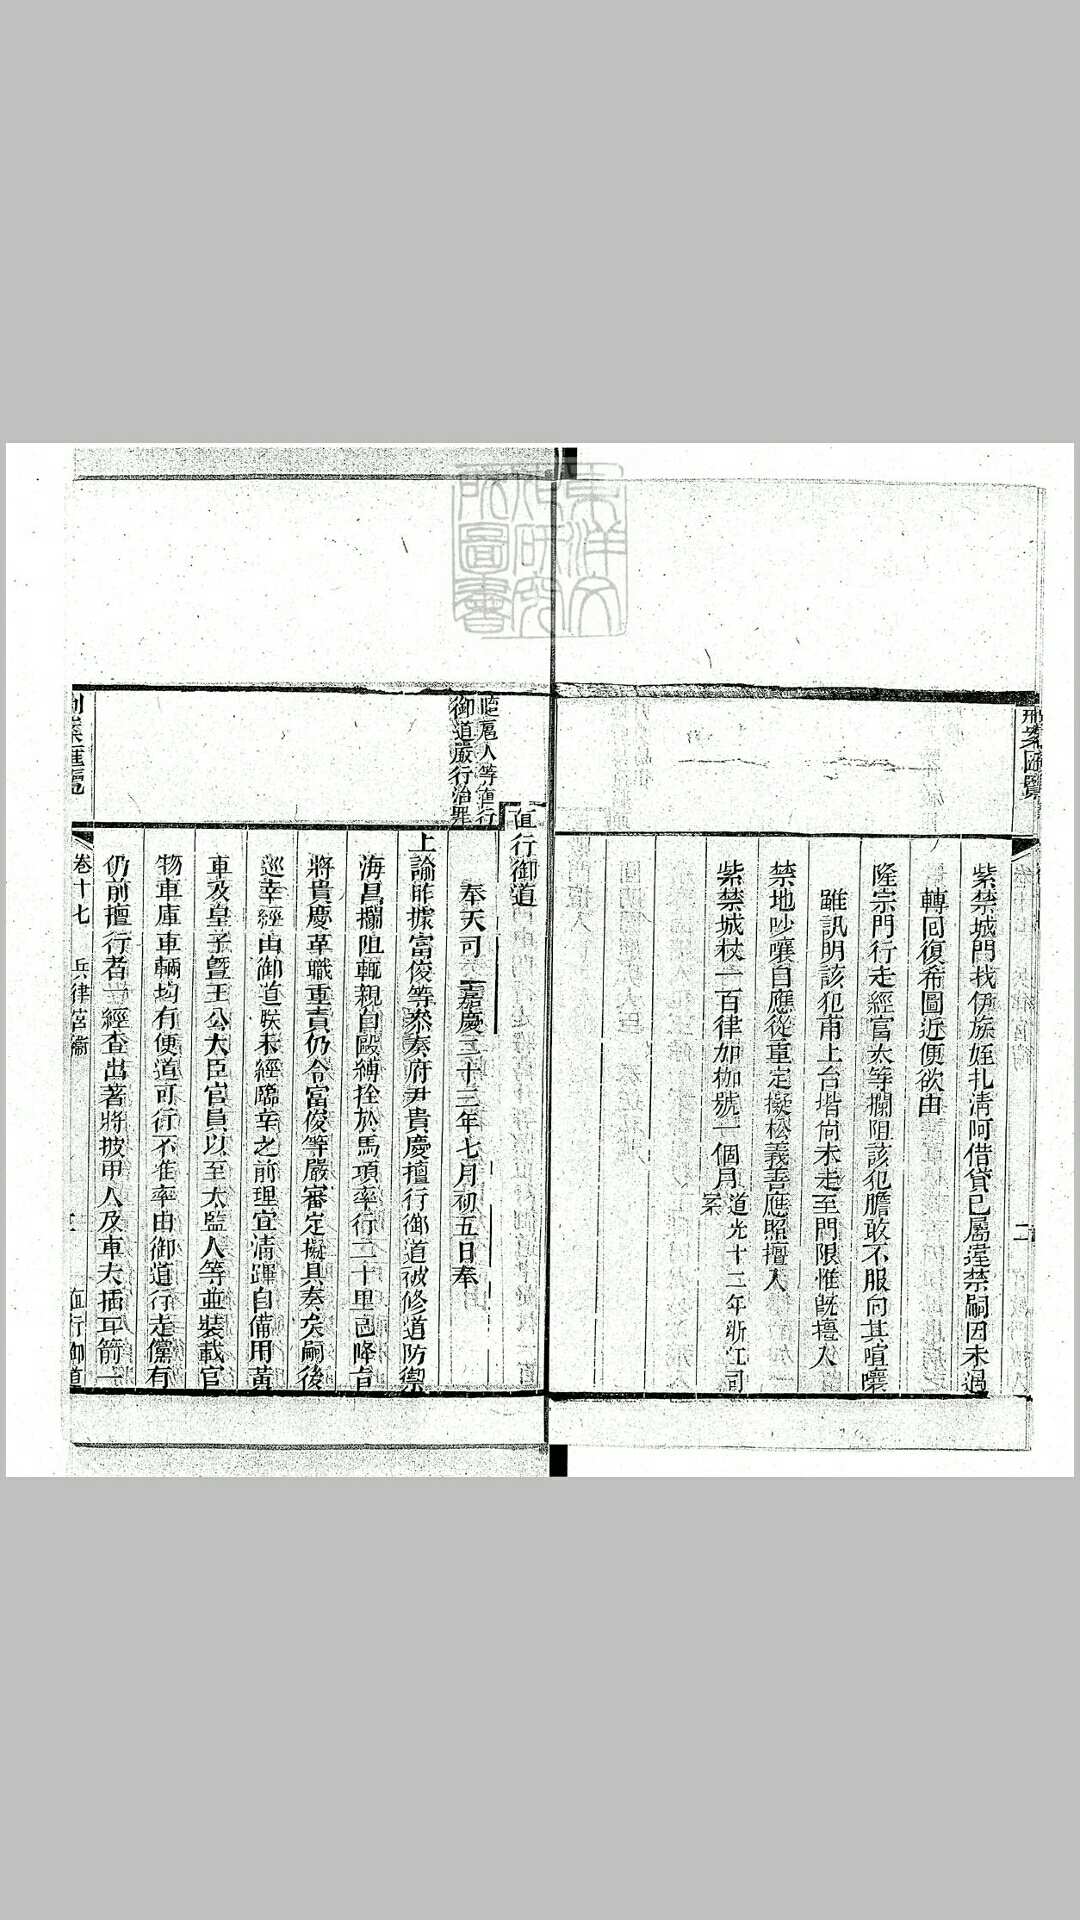 刑案匯覽
紫禁城門找伊族姪扎清阿借貸已屬違禁嗣因未遇
轉回復希圖近便欲由
隆宗門行走經官太等攔阻該犯膽敢不服向其喧嚷
雖訊明該犯甫上台堦尚未走至門限惟既擅入
禁地吵嚷自應從重定擬松義善應照擅入
紫禁城杖一百律加枷號一個月
道光十二年浙江司
案
二
直行御道
扈人等直行
御道嚴行治罪
奉天司 嘉慶二十三年七月初五日奉
上諭昨據富俊等叅奏府尹貴慶擅行御道被修道防禦
海昌攔阻輒親自毆縛拴於馬項率行二十里已降旨
將貴慶革職重責仍令富俊等嚴審定擬具奏矣嗣後
巡幸經由御道朕未經臨幸之前理宜清蹕自備用黃
車及皇子暨王公大臣官員以至太監人等並裝載官
物車庫車輛均有便道可行不准率由御道行走儻有
仍前擅行者一經查出著將披甲人及車夫插耳箭一
刑案匯覽
卷十七 兵律宮衛
直行御道
東洋文化研究所圖書